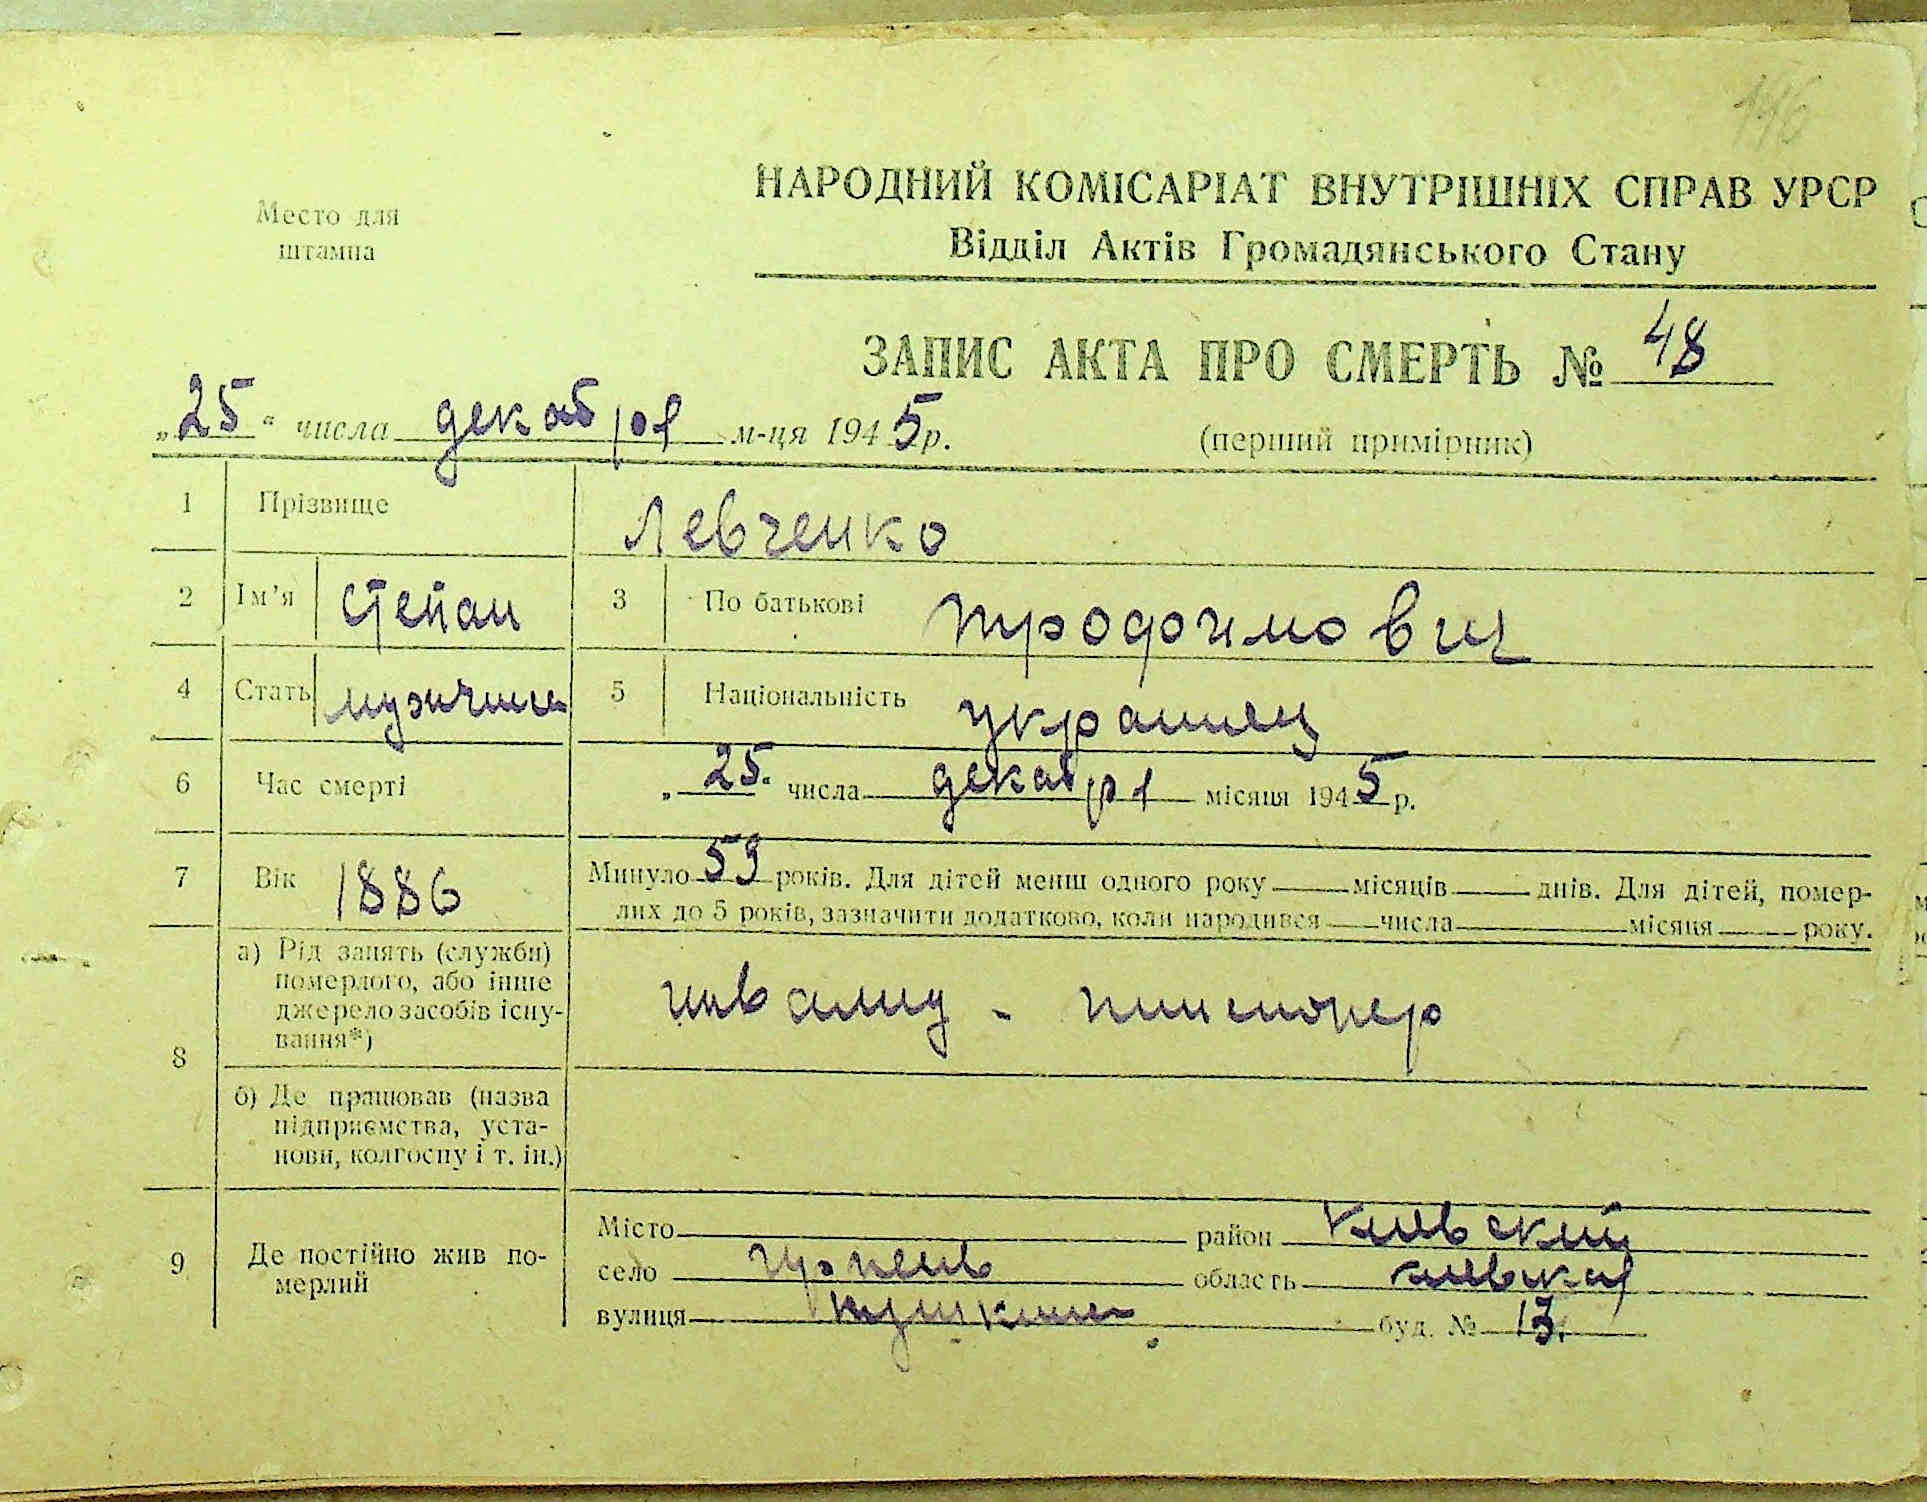 146
Место для
штампа
НАРОДНИЙ КОМІСАРІАТ ВНУТРІШНІХ СПРАВ УРСР
Відділ Актів Громадянського Стану
ЗАПИС АКТА ПРО СМЕРТЬ № 48
„25“ числа декабря м-ця 1945 р.
(перший примірник)
1 Прізвище Левченко
2 Ім'я Степан 3 По батькові Тродоимович
4 Стать мужчина 5 Національність украинец
6 Час смерті „25“ числа декабря місяця 1945 р.
7 Вік 1886 Минуло 59 років. Для дітей менш одного року місяців днів. Для дітей, помер-
лих до 5 років, зазначити додатково, коли народився числа місяця року.
8 а) Рід занять (служби)
померлого, або інше
джерело засобів існу-
вання*)
инвалид - пинсионер
б) Де працював (назва
підприємства, уста-
нови, колгоспу і т. ін.)
9 Де постійно жив по-
мерлий
Місто район Киевский
село Ирпень область Киевская
вулиця Пушкина буд. № 13.